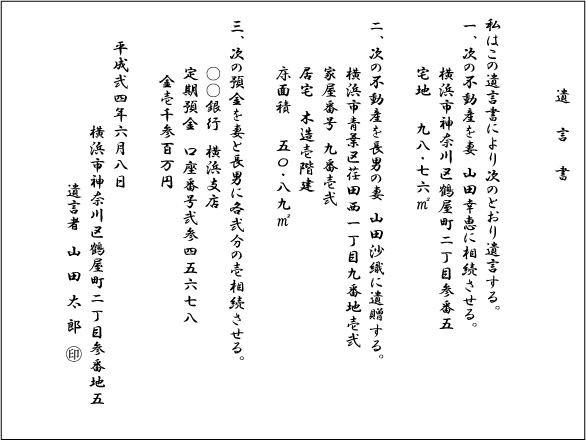 遺言書
私はこの遺言書により次のとおり遺言する。
一、次の不動産を妻 山田幸恵に相続させる。
横浜市神奈川区鶴屋町二丁目参番五
宅地 九八・七六㎡
二、次の不動産を長男の妻 山田沙織に遺贈する。
横浜市青葉区荏田西一丁目九番地壱弐
家屋番号 九番壱弐
居宅 木造壱階建
床面積 五〇・八九㎡
三、次の預金を妻と長男に各弐分の壱相続させる。
〇〇銀行 横浜支店
定期預金 口座番号弐参四五六七八
金壱千参百万円
平成弐四年六月八日
横浜市神奈川区鶴屋町二丁目参番地五
遺言者 山田太郎 ㊞